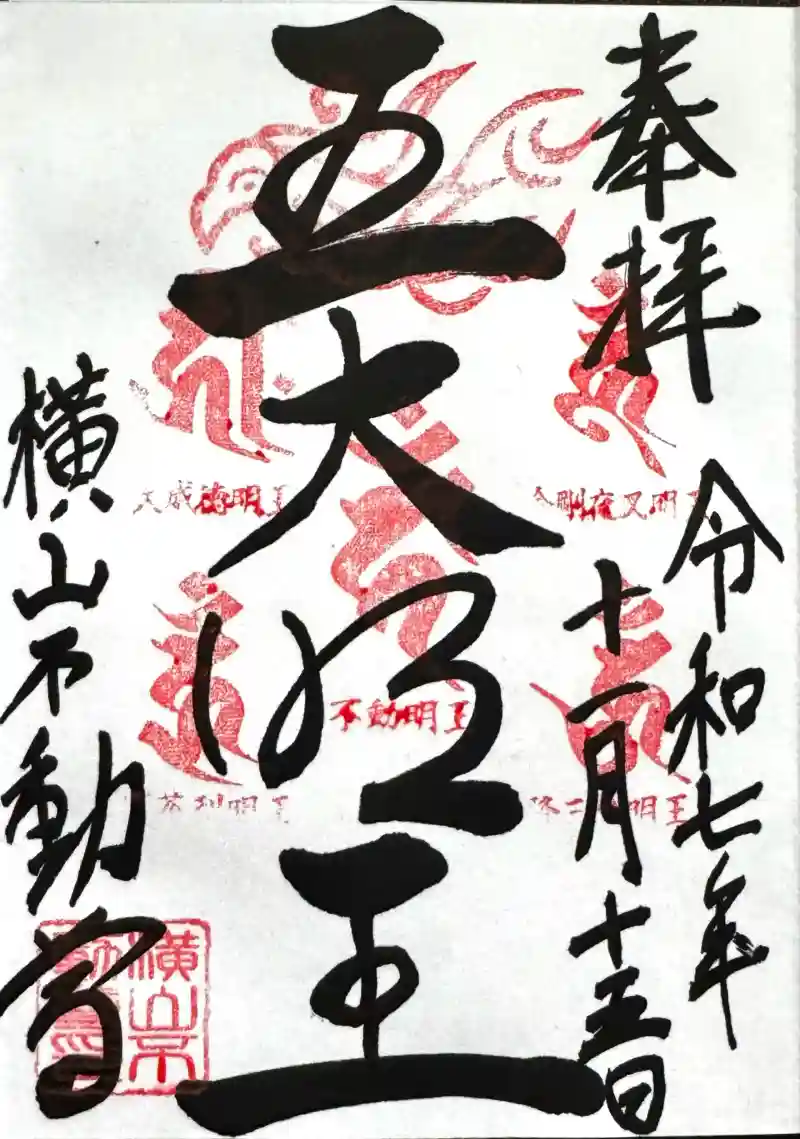 奉拝
令和七年
十一月十五日
五大明王
横山不動尊
大威徳明王
金剛夜叉明王
不動明王
明王
明王
横山不動